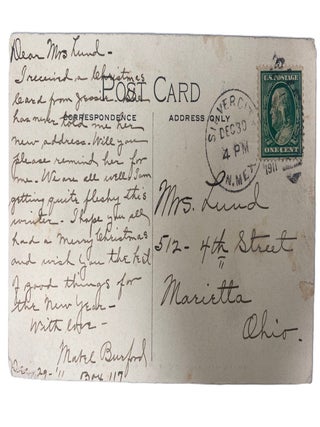 Dear Mrs Lund -
I received a Christmas
Card from Jessie but she
has never told me her
new address. Will you
please remind her for
me. We are all well. I am
getting quite fleshy this
winter. I hope you all
had a Merry Christmas
and wish you the best
of good things for
the New Year -
With love -
Mabel Burford
Dec. 29 - '11 Box 117
POST CARD
CORRESPONDENCE
ADDRESS ONLY
SILVER CITY
DEC 30
4 PM
N. MEX.
1911
U.S. POSTAGE
ONE CENT
Mrs. Lund
512 - 4th Street
Marietta
Ohio.